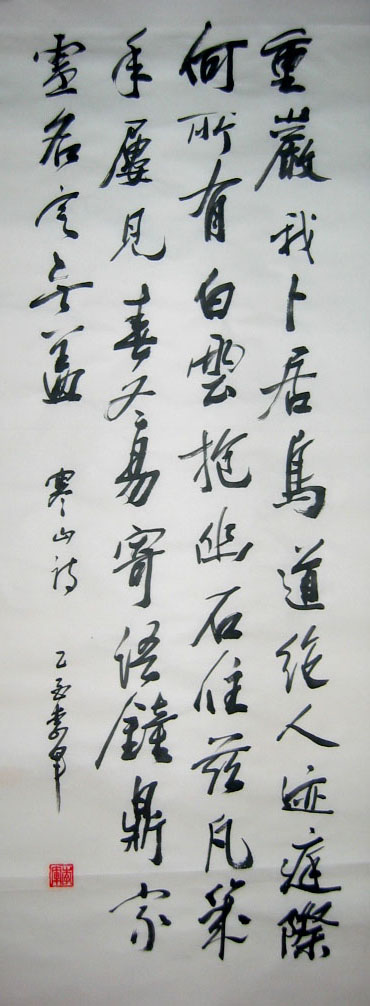 重巖我卜居鳥道絕人迹庭際
何所有白雲抱幽石住茲凡幾
年屢見春冬易寄語鐘鼎家
虛名定無益 寒山詩 乙酉